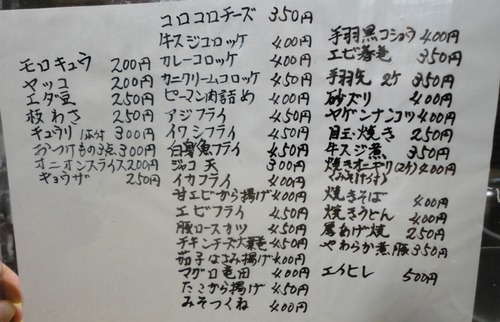 モロキュウ 200円
ヤッコ 200円
エダ豆 250円
板わさ 250円
キュウリ1本付 300円
おつけもの3点 300円
オニオンスライス 200円
ギョウザ 250円
コロコロチーズ 350円
牛スジコロッケ 400円
カレーコロッケ 400円
カニクリームコロッケ 450円
ピーマン肉詰め 400円
アジフライ 450円
イワシフライ 450円
白身魚フライ 450円
ジャコ天 300円
イカフライ 400円
甘エビから揚げ 400円
エビフライ 450円
豚ロースカツ 450円
チキンチーズ大葉巻 450円
茄子はさみ揚げ 400円
マグロ竜田 400円
たこから揚げ 450円
みそつくね 400円
手羽黒コショウ 400円
エビ春巻 350円
手羽先 2ケ 350円
砂ズリ 400円
ヤゲンナンコツ 400円
目玉焼き 250円
牛スジ煮 350円
焼きオニギリ(2ケ) 400円
(みそ汁付)
焼きそば 400円
焼きうどん 400円
厚あげ焼 250円
やわらか煮豚 350円
エイヒレ 500円